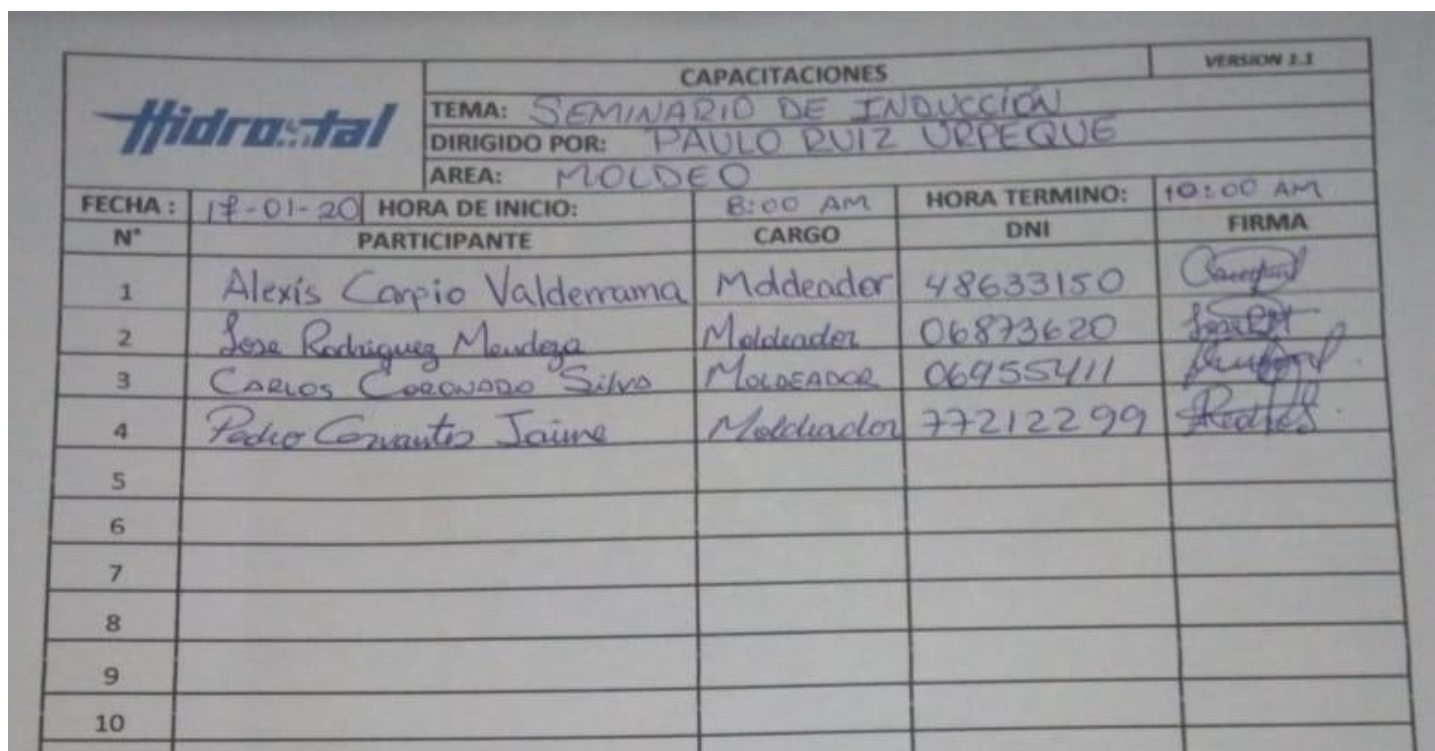 Hidrostal
CAPACITACIONES VERSION 1.1
TEMA: SEMINARIO DE INDUCCIÓN
DIRIGIDO POR: PAULO RUIZ URPEQUE
AREA: MOLDEO
FECHA : 17-01-20 HORA DE INICIO: 8:00 AM HORA TERMINO: 10:00 AM
N° PARTICIPANTE CARGO DNI FIRMA
1 Alexis Carpio Valderrama Moldeador 48633150
2 Jose Rodriguez Mendoza Moldeador 06873620
3 CARLOS CORONADO Silva MOLDEADOR 06955411
4 Pedro Cervantes Jaime Moldeador 77212299
5
6
7
8
9
10